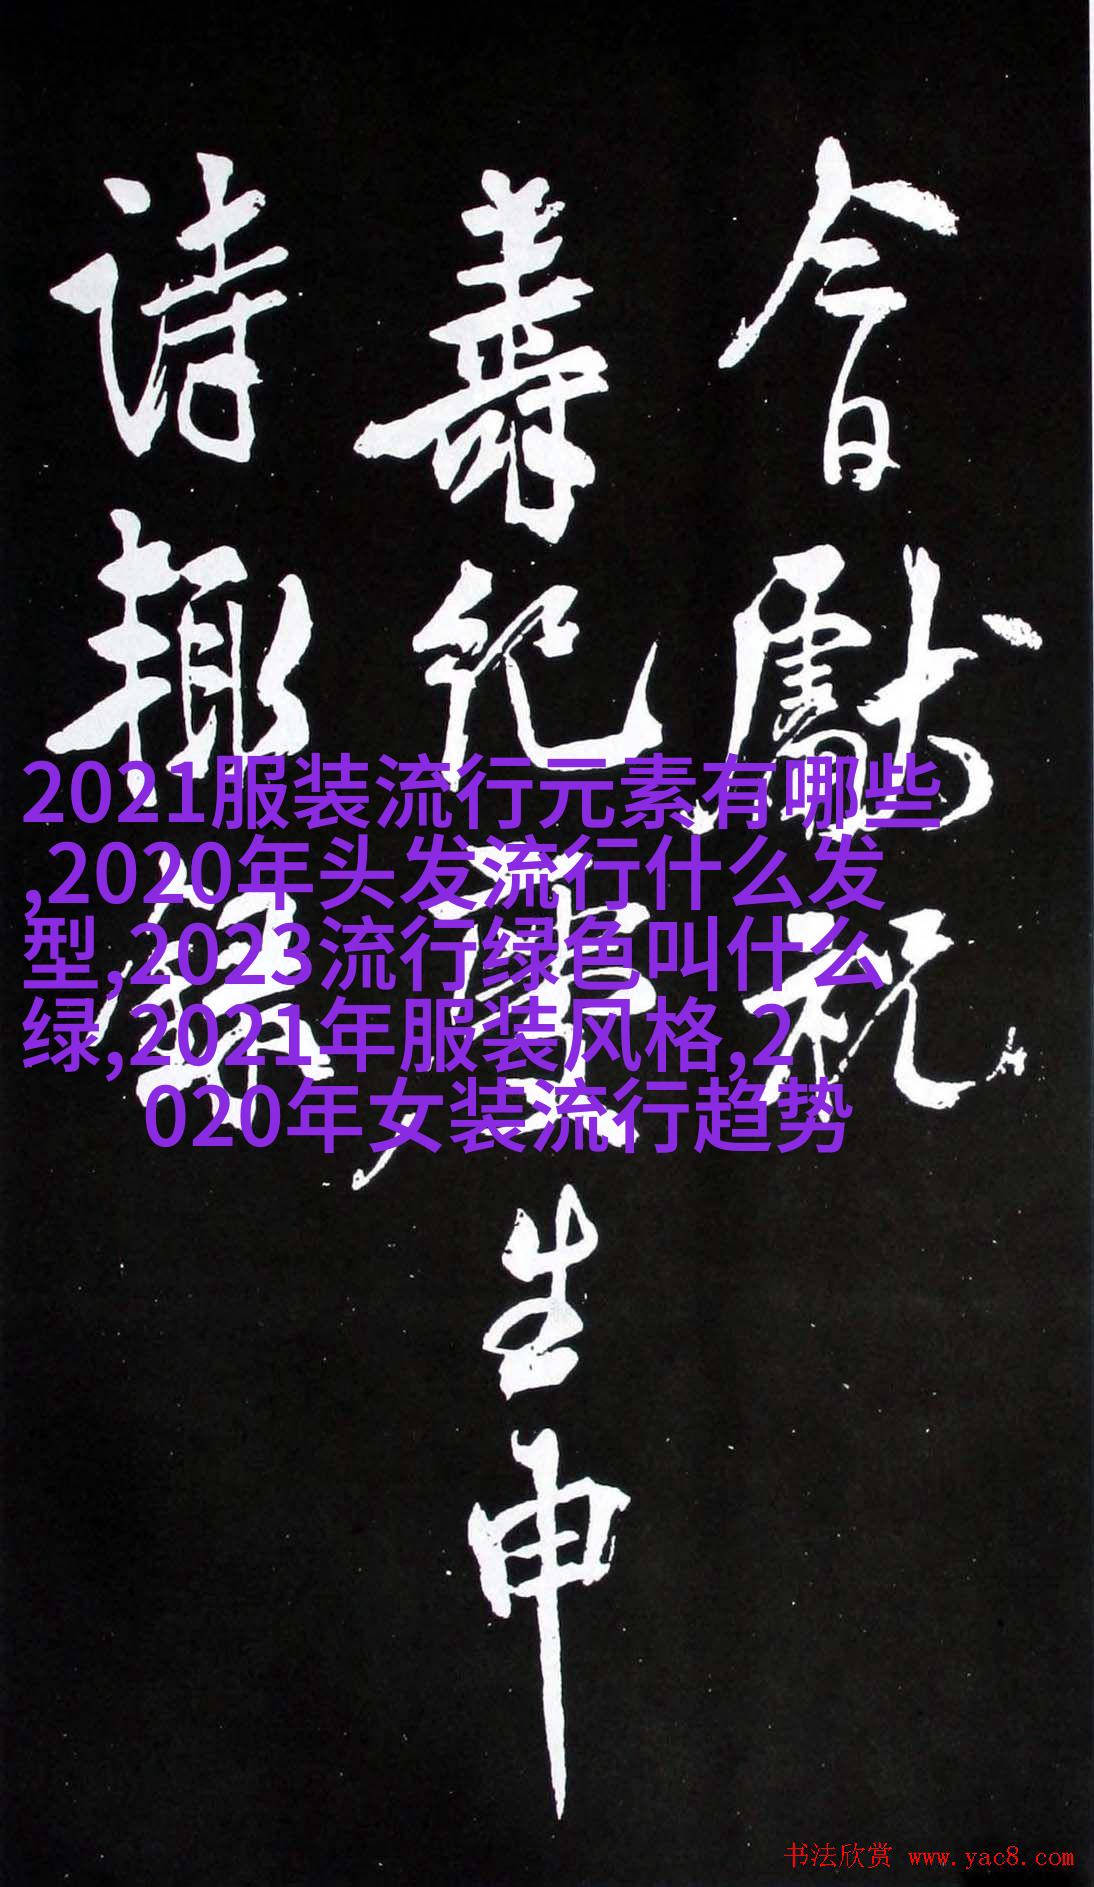 今日獻祝
壽紀生申
詩趣
2021服装流行元素有哪些
,2020年头发流行什么发
型,2023流行绿色叫什么
绿,2021年服装风格,2
020年女装流行趋势
书法欣赏 www.yac8.com